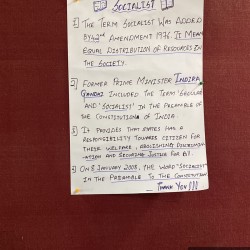 SOCIALIST
1) THE TERM SOCIALIST WAS ADDED
BY 42nd AMENDMENT 1976. IT MEANS
EQUAL DISTRIBUTION OF RESOURCES IN
THE SOCIETY.
2) FORMER PRIME MINISTER INDIRA
GANDHI INCLUDED THE TERM 'SECULAR'
AND 'SOCIALIST' IN THE PREAMBLE OF
THE CONSTITUTION OF INDIA.
3) IT PROVIDES THAT STATES HAS A
RESPONSIBILITY TOWARDS CITIZEN FOR
THEIR WELFARE, ABOLISHING DISCRIMIN-
ATION AND SECURING JUSTICE FOR
4) ON 8 JANUARY 2008, THE WORD "SOCIALIST"
IN THE PREAMBLE TO THE CONSTITUTION
THANK YOU!!!